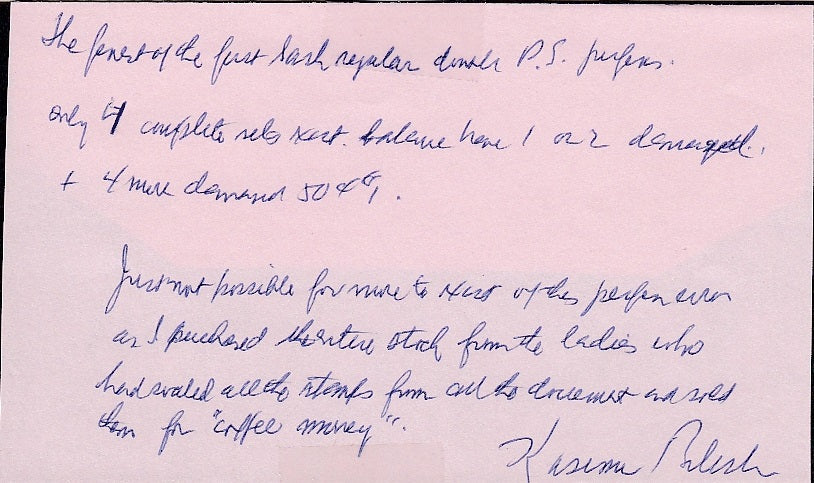 The finest of the first Sask regular double P.S. perfins.
only 4 complete sets exist. balance have 1 or 2 damaged.
+ 4 more damaged 50¢
Just not possible for more to exist of this perfin error
as I purchased the entire stock from the ladies who
had soaked all the stamps from all the document and sold
them for "coffee money".